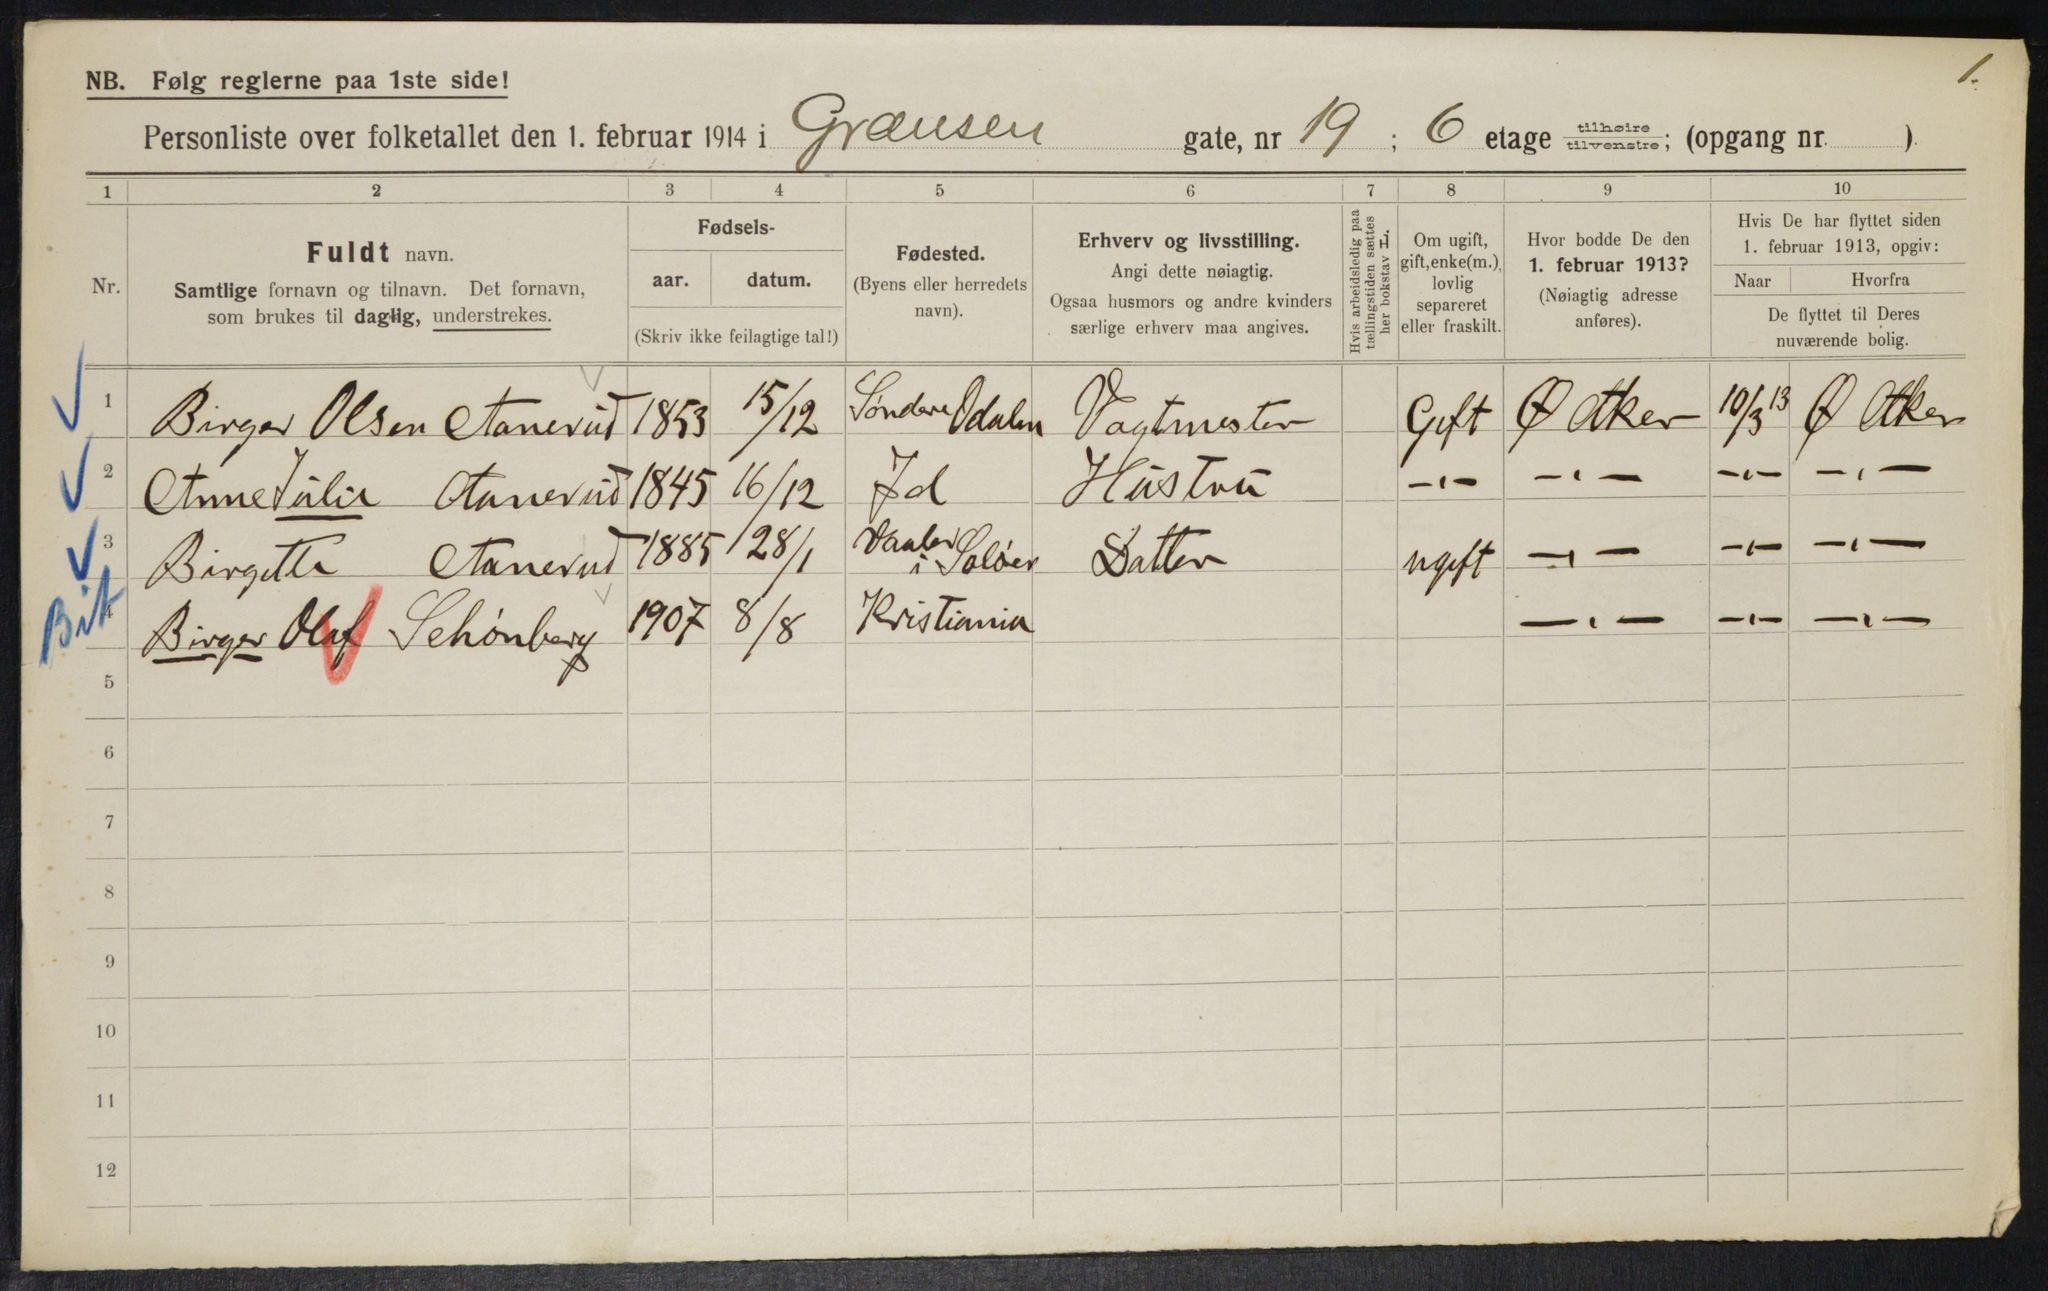 1.
NB. Følg reglerne paa 1ste side!
Personliste over folketallet den 1. februar 1914 i Grænsen gate, nr 19 ; 6 etage tilhøire tilvenstre; (opgang nr. )
1 2 3 4 5 6 7 8 9 10
Nr.
Fuldt navn.
Samtlige fornavn og tilnavn. Det fornavn,
som brukes til daglig, understrekes.
Fødsels-
aar. datum.
(Skriv ikke feilagtige tal!)
Fødested.
(Byens eller herredets
navn).
Erhverv og livsstilling.
Angi dette nøiagtig.
Ogsaa husmors og andre kvinders
særlige erhverv maa angives.
Hvis arbeidsledig paa
tællingstiden sættes
her bokstav L.
Om ugift,
gift, enke(m.),
lovlig
separeret
eller fraskilt.
Hvor bodde De den
1. februar 1913?
(Nøiagtig adresse
anføres).
Hvis De har flyttet siden
1. februar 1913, opgiv:
Naar Hvorfra
De flyttet til Deres
nuværende bolig.
1 Birger Olsen Aanerud 1853 15/12 Søndre Odalen Vagtmester Gift Ø Aker 10/3 13 Ø Aker
2 Anne Julie Aanerud 1845 16/12 Id Hustru -"- -"- -"- -"-
3 Birgitte Aanerud 1885 28/1 Vaaler i Soløer Datter ugift -"- -"- -"-
Bit 4 Birger Olaf Schønberg 1907 8/8 Kristiania -"- -"- -"-
5
6
7
8
9
10
11
12